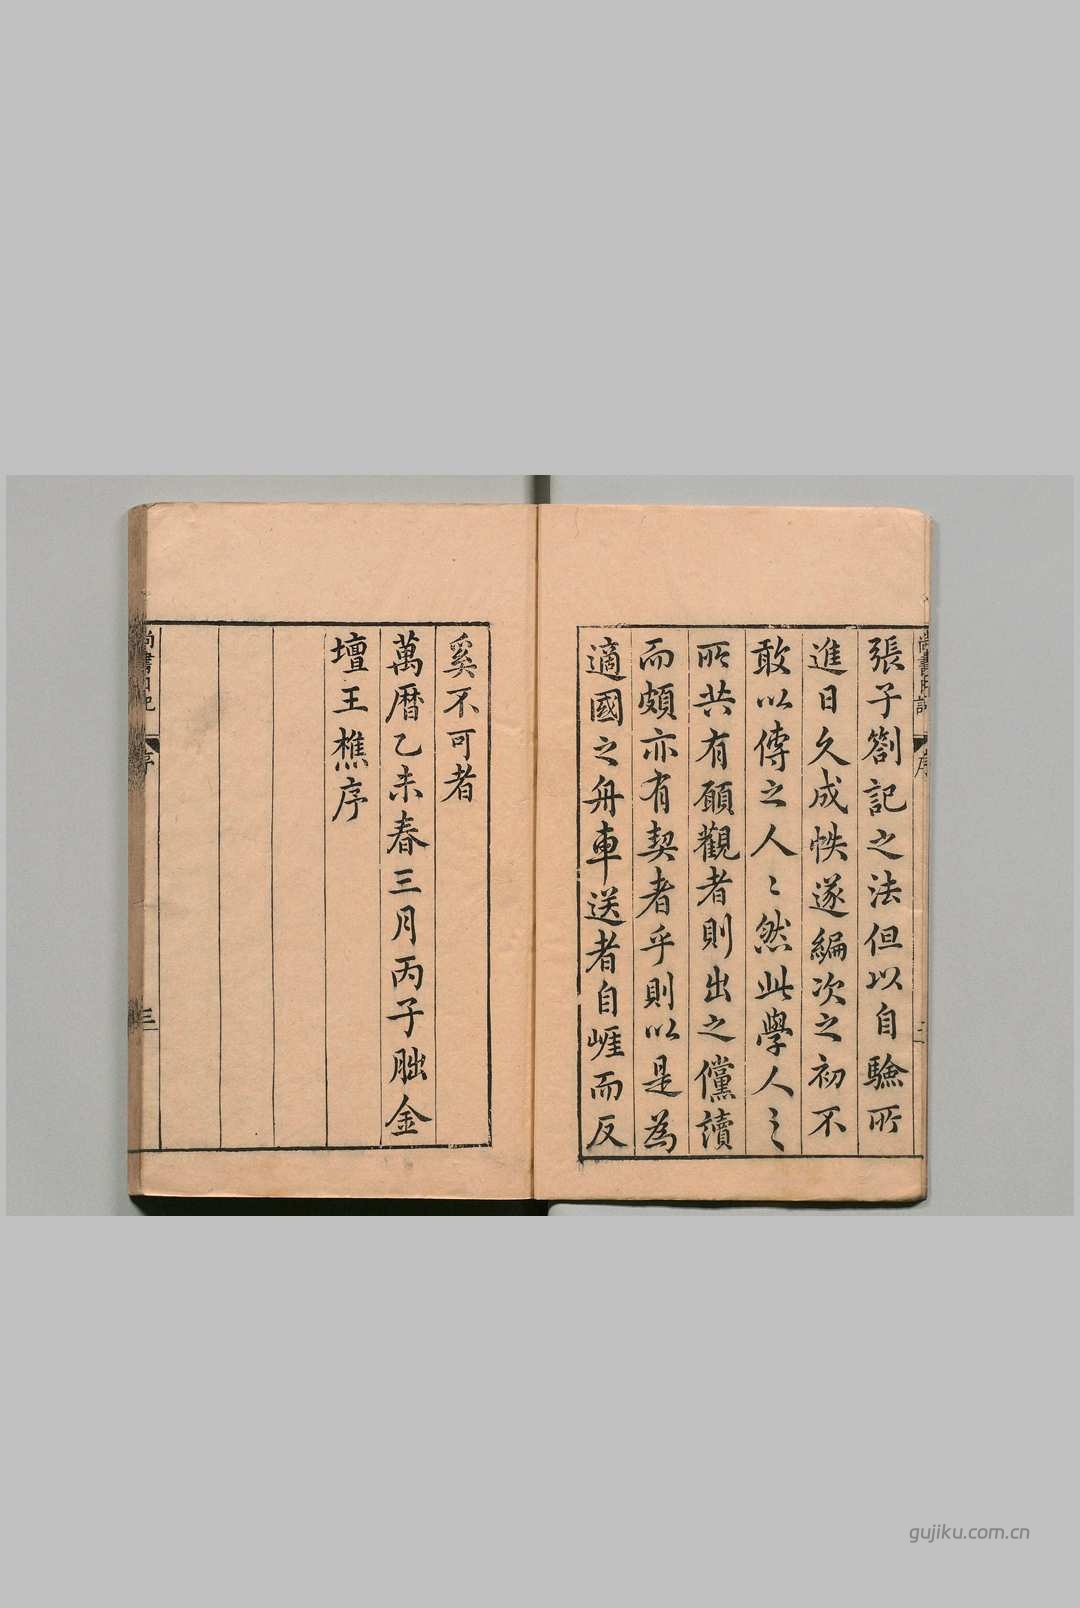 張子劄記之法但以自驗所
進日久成帙遂編次之初不
敢以傳之人〻然此學人之
所共有願觀者則出之儻讀
而頗亦有契者乎則以是為
適國之舟車送者自崕而反
奚不可者
萬曆乙未春三月丙子朏金
壇王樵序
尚書日記
序
三
gujiku.com.cn